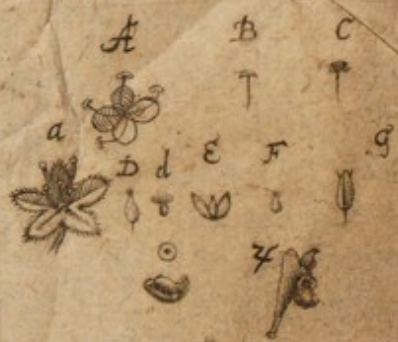 A B C
a D d E F g
4